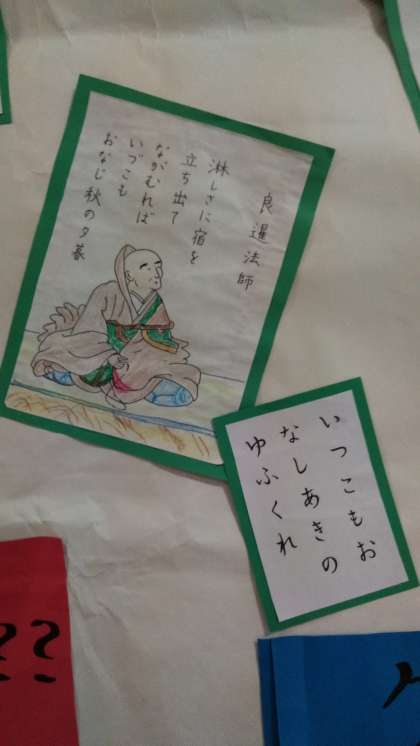 良暹法師
淋しさに宿を
立ち出て
ながむれば
いづこも
おなじ秋の夕暮
いつこもお
なしあきの
ゆふくれ
??